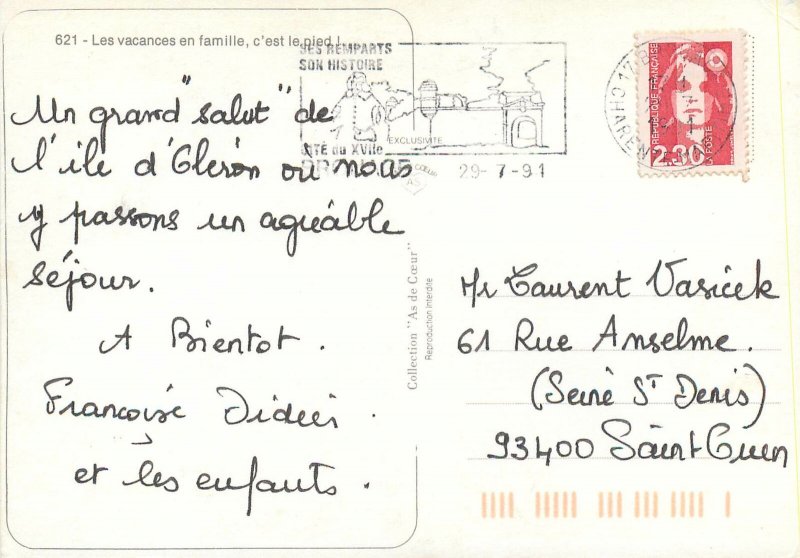 621 - Les vacances en famille, c'est le pied !
SES REMPARTS
SON HISTOIRE
CITÉ du XVIIe
EXCLUSIVITÉ
29-7-91
RÉPUBLIQUE FRANÇAISE
2.30
LA POSTE
Un grand "salut" de
l'île d'Oléron où nous
y passons un agréable
séjour.
A Bientot.
Françoise Didier
et les enfants.
Collection "As de Cœur"
Reproduction interdite
Mr Laurent Vasicek
61 Rue Anselme.
(Seine St Denis)
93400 Saint Ouen